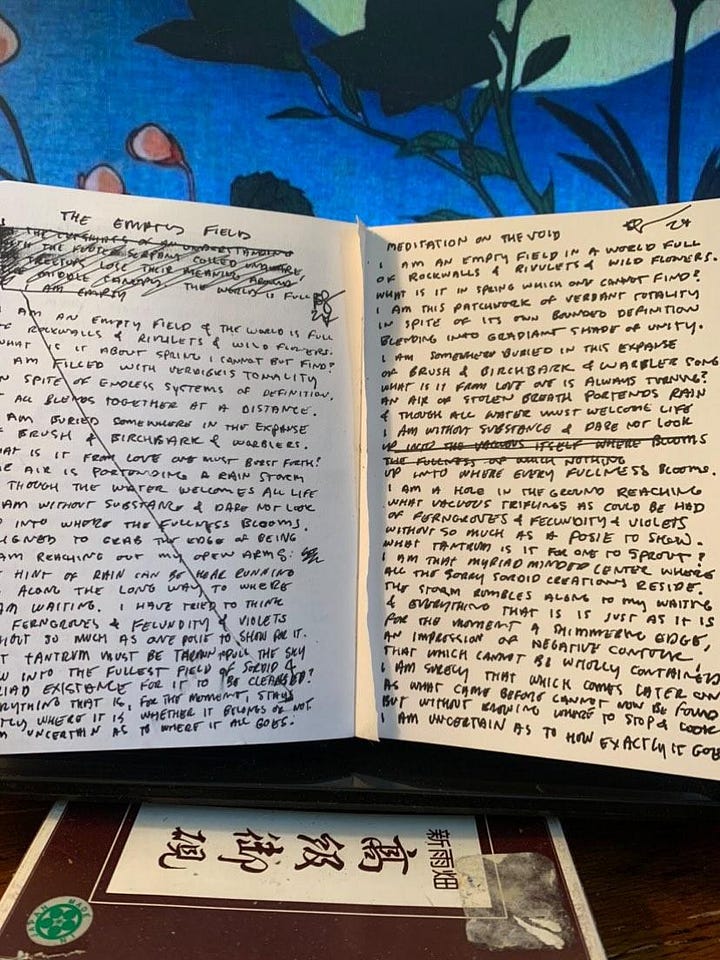 THE EMPTY FIELD
THE WORLD IS FULL
I AM EMPTY
I AM AN EMPTY FIELD & THE WORLD IS FULL
OF ROCKWALLS & RIVULETS & WILD FLOWERS.
WHAT IS IT ABOUT SPRING I CANNOT BUT FIND?
I AM FILLED WITH VERDIGRIS TONALITY
IN SPITE OF ENDLESS SYSTEMS OF DEFINITION.
IT ALL BLENDS TOGETHER AT A DISTANCE.
I AM BURIED SOMEWHERE IN THE EXPANSE
OF BRUSH & BIRCHBARK & WARBLERS.
WHAT IS IT FROM LOVE ONE MUST BURST FORTH?
THE AIR IS PORTENDING A RAIN STORM
THOUGH THE WATER WELCOMES ALL LIFE
I AM WITHOUT SUBSTANCE & DARE NOT LOOK
UP INTO WHERE THE FULLNESS BLOOMS.
TO GRAB THE EDGE OF BEING
I AM REACHING OUT MY OPEN ARMS:
HINT OF RAIN CAN BE HEAR RUNNING
ALONG THE LONG WAY TO WHERE
I AM WAITING. I HAVE TRIED TO THINK
FERNGROVES & FECUNDITY & VIOLETS
WITHOUT SO MUCH AS ONE POSIE TO SHOW FOR IT.
TANTRUM MUST BE PULL THE SKY
INTO THE FULLEST FIELD OF SORDID &
MYRIAD EXISTANCE FOR IT TO BE CLEANSED?
EVERYTHING THAT IS, FOR THE MOMENT, STAYS
WHERE IT IS WHETHER IT BELONGS OR NOT
UNCERTAIN AS TO WHERE IT ALL GOES.
24
MEDITATION ON THE VOID
I AM AN EMPTY FIELD IN A WORLD FULL
OF ROCKWALLS & RIVULETS & WILD FLOWERS.
WHAT IS IT IN SPRING WHICH ONE CANNOT FIND?
I AM THIS PATCHWORK OF VERDANT TOTALITY
IN SPITE OF ITS OWN BOUNDED DEFINITION
BLENDING INTO GRADIANT SHADE OF UNITY.
I AM SOMEWHERE BURIED IN THIS EXPANSE
OF BRUSH & BIRCHBARK & WARBLER SONG
WHAT IS IT FROM LOVE ONE IS ALWAYS TURNING?
AN AIR OF STOLEN BREATH PORTENDS RAIN
& THOUGH ALL WATER MUST WELCOME LIFE
I AM WITHOUT SUBSTANCE & DARE NOT LOOK
UP INTO THE VACUOUS ITSELF WHERE BLOOMS
THE FULLNESS OF WHICH NOTHING
UP INTO WHERE EVERY FULLNESS BLOOMS.
I AM A HOLE IN THE GROUND REACHING
WHAT VACUOUS TRIFLINGS AS COULD BE HAD
OF FERNGROVES & FECUNDITY & VIOLETS
WITHOUT SO MUCH AS A POSIE TO SHOW.
WHAT TANTRUM IS IT FOR ONE TO SPROUT?
I AM THAT MYRIAD MINDED CENTER WHERE
ALL THE SORRY SORDID CREATIONS RESIDE.
THE STORM RUMBLES ALONG TO MY WAITING
& EVERYTHING THAT IS IS JUST AS IT IS
FOR THE MOMENT A SHIMMERING EDGE,
AN IMPRESSION OF NEGATIVE CONTOUR
THAT WHICH CANNOT BE WHOLLY CONTAINED
I AM SURELY THAT WHICH COMES LATER ON
AS WHAT CAME BEFORE CANNOT NOW BE FOUND
BUT WITHOUT KNOWING WHERE TO STOP & LOOK
I AM UNCERTAIN AS TO HOW EXACTLY IT GOES
新雨畑
高級御硯
MADE IN JAPAN